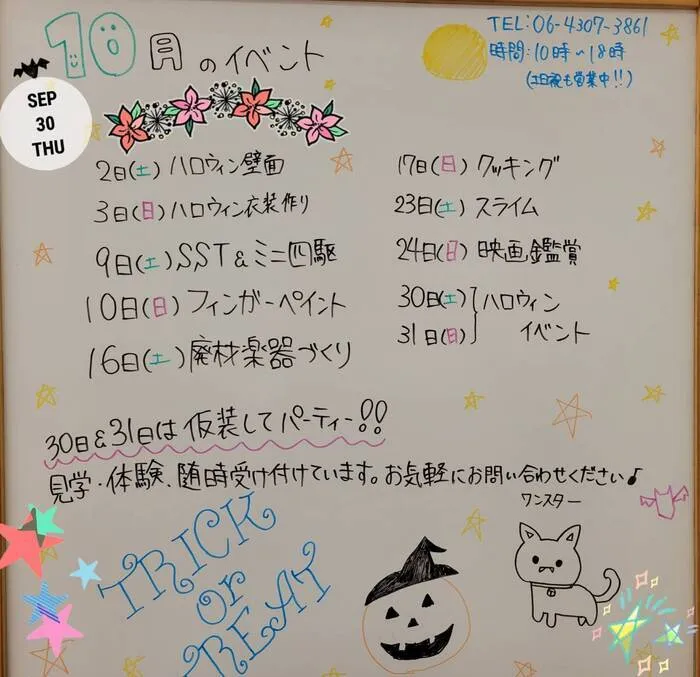 10月のイベント
TEL:06-4307-3861
時間:10時〜18時
(土日祝も営業中!!)
SEP
30
THU
2日(土) ハロウィン壁面
3日(日) ハロウィン衣装作り
9日(土) SST&ミニ四駆
10日(日) フィンガーペイント
16日(土) 廃材楽器づくり
17日(日) クッキング
23日(土) スライム
24日(日) 映画鑑賞
30日(土)
31日(日)
ハロウィン
イベント
30日&31日は仮装してパーティー!!
見学・体験、随時受け付けています。お気軽にお問い合わせください♪
ワンスター
TRICK
or
TREAT